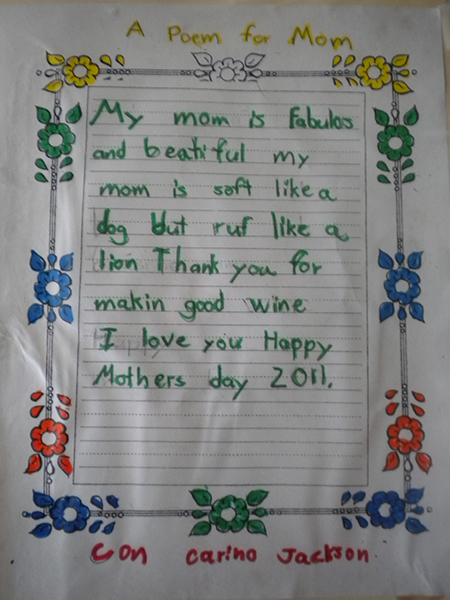 A Poem for Mom
My mom is Fabulos
and beatiful my
mom is soft like a
dog but ruf like a
lion Thank you for
makin good wine
I love you Happy
Mothers day 2011.
Con carino Jackson